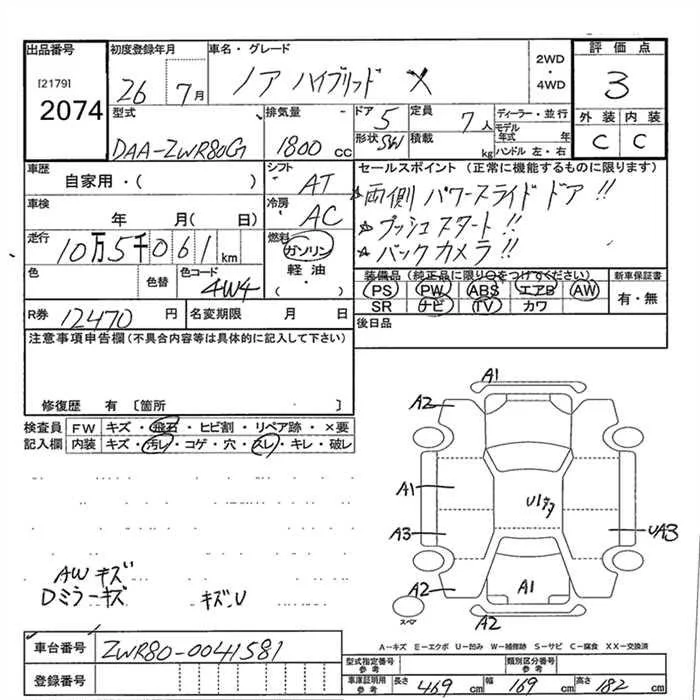 出品番号
[2179]
2074
初度登録年月
26年7月
車名・グレード
ノア ハイブリッド X
2WD
・
4WD
評価点
3
外装 内装
C C
型式
DAA-ZWR80G
排気量
1800 cc
ドア 5
形状 SW
定員 7人
積載 kg
ディーラー・並行
モデル年式 年
ハンドル 左・右
車歴
自家用・( )
シフト AT
車検
年 月( 日)
冷房 AC
走行
10万5千061km
燃料
ガソリン
軽油
( ・ )
色
色替
色コード
4W4
R券 12470 円
名変期限 月 日
セールスポイント (正常に機能するものに限ります)
★両側 パワースライド ドア!!
★プッシュスタート!!
★バックカメラ!!
装備品(純正品に限り○をつけてください)
PS PW ABS エアB AW
SR ナビ TV カワ
新車保証書
有・無
後日品
注意事項申告欄(不具合内容等は具体的に記入して下さい)
修復歴 有 [箇所 ]
検査員記入欄
FW キズ・飛石・ヒビ割・リペア跡・×要
内装 キズ・汚レ・コゲ・穴・スレ・キレ・破レ
AW キズ
Dミラーキズ キズ、U
A1
A2
A1
A3
A2
A1
A2
UA3
スペア
A-キズ E-エクボ U-凹み W-補修跡 S-サビ C-腐食 XX-交換済
車台番号 ZWR80-0041581
登録番号
型式指定番号 参考
類別区分番号 参考
車庫証明用 参考
長さ 469 cm
幅 169 cm
高さ 182 cm